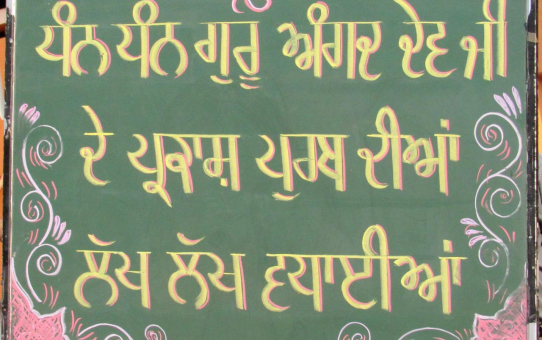 ਧੰਨ ਧੰਨ ਗੁਰੂ ਅੰਗਦ ਦੇਵ ਜੀ
ਦੇ ਪ੍ਰਕਾਸ਼ ਪੁਰਬ ਦੀਆਂ
ਲੱਖ ਲੱਖ ਵਧਾਈਆਂ